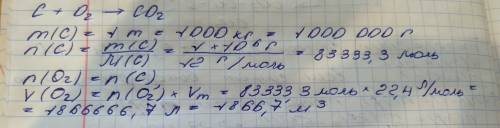 C + O₂ → CO₂
m(C) = 1 т = 1000 кг = 1 000 000 г
n(C) = m(C)/M(C) = 1*10⁶ г/12 г/моль = 83333,3 моль
n(O₂) = n(C)
V(O₂) = n(O₂) × Vm = 83333,3 моль * 22,4 л/моль =
= 1866666,7 л = 1866,7 м³